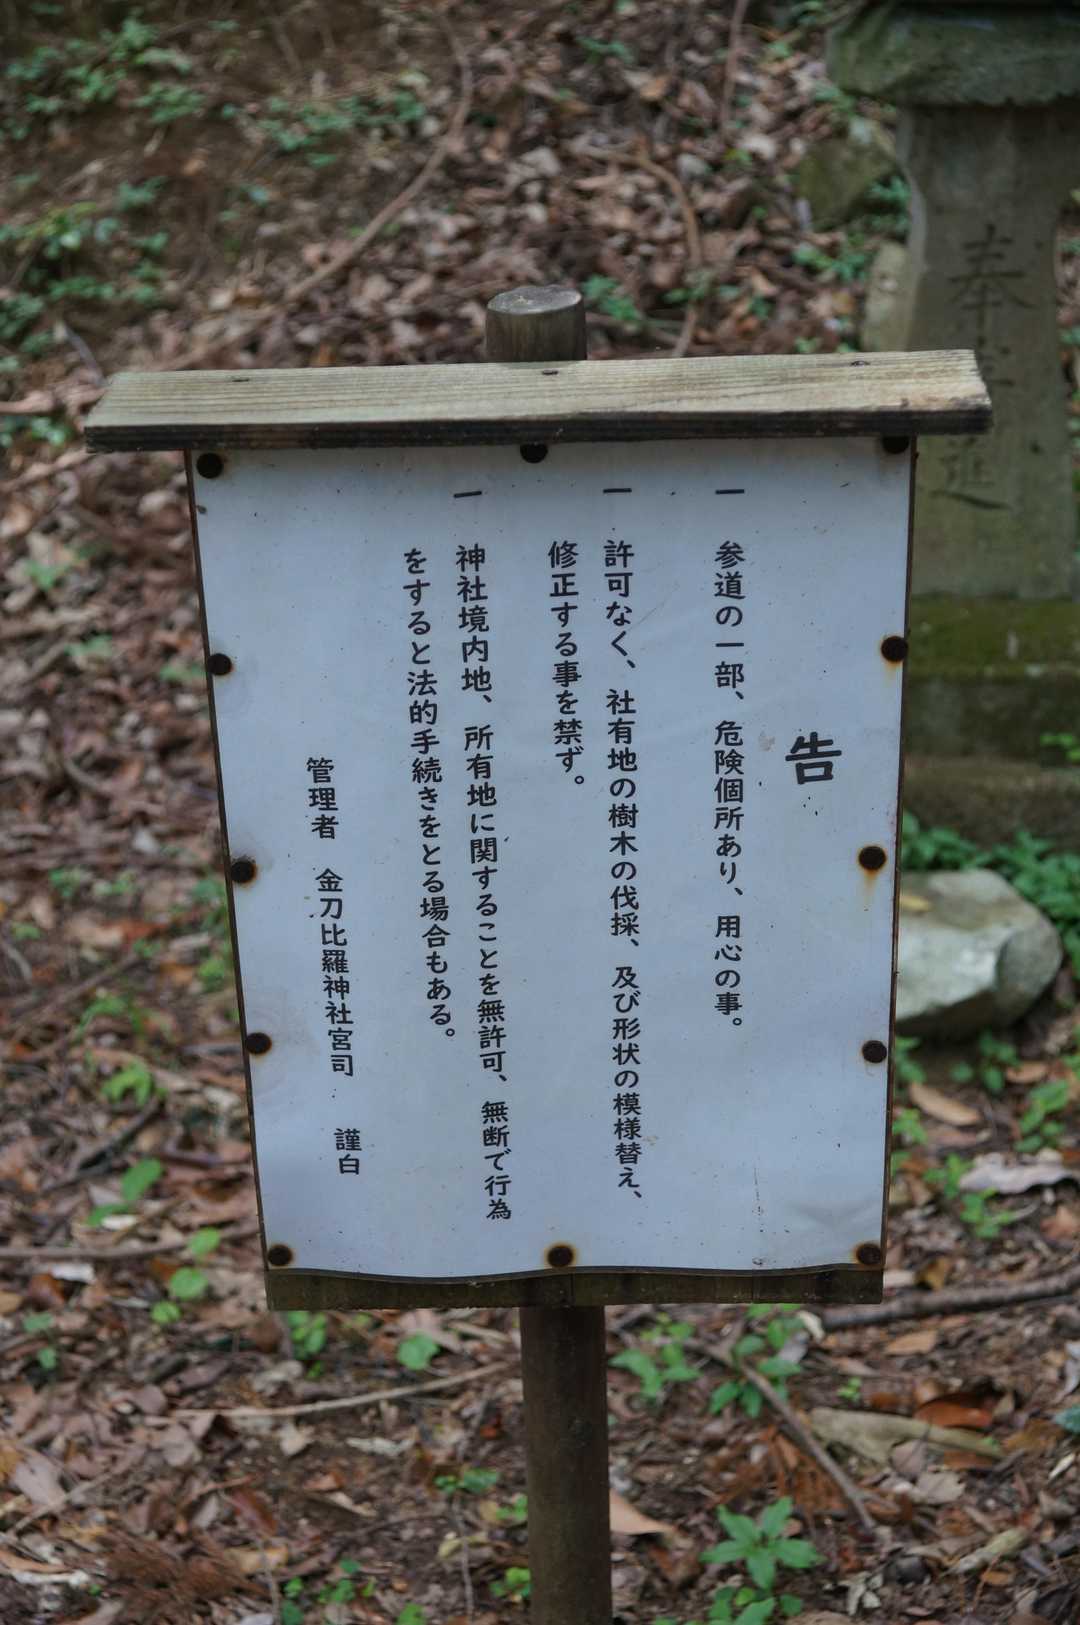 告
一 参道の一部、危険個所あり、用心の事。
一 許可なく、社有地の樹木の伐採、及び形状の模様替え、
修正する事を禁ず。
一 神社境内地、所有地に関することを無許可、無断で行為
をすると法的手続きをとる場合もある。
管理者 金刀比羅神社宮司 謹白
奉
進